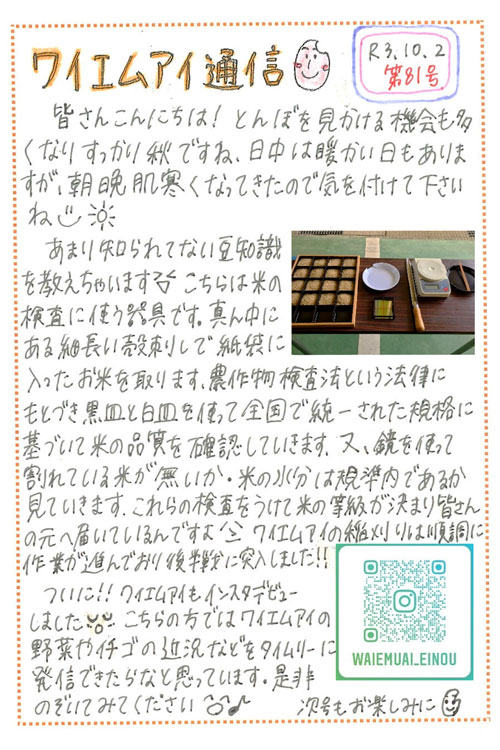 ワイエムアイ通信
R3.10.2
第81号
皆さんこんにちは！とんぼを見かける機会も多
くなりすっかり秋ですね、日中は暖かい日もありま
すが、朝晩肌寒くなってきたので気を付けて下さい
ね
あまり知られてない豆知識
を教えちゃいます こちらは米の
検査に使う器具です。真ん中に
ある細長い殻刺しで紙袋に
入ったお米を取ります。農作物検査法という法律に
もとづき黒皿と白皿を使って全国で統一された規格に
基づいて米の品質を確認していきます。又、鏡を使って
割れている米が無いか・米の水分は規準内であるか
見ていきます。これらの検査をうけて米の等級が決まり皆さん
の元へ届いているんですよ ワイエムアイの稲刈りは順調に
作業が進んでおり後半戦に突入しました!!
ついに!! ワイエムアイもインスタデビュー
しました こちらの方ではワイエムアイの
野菜やイチゴの近況などをタイムリーに
発信できたらなと思っています。是非
のぞいてみてください♪
WAIEMUAI_EINOU
次号もお楽しみに